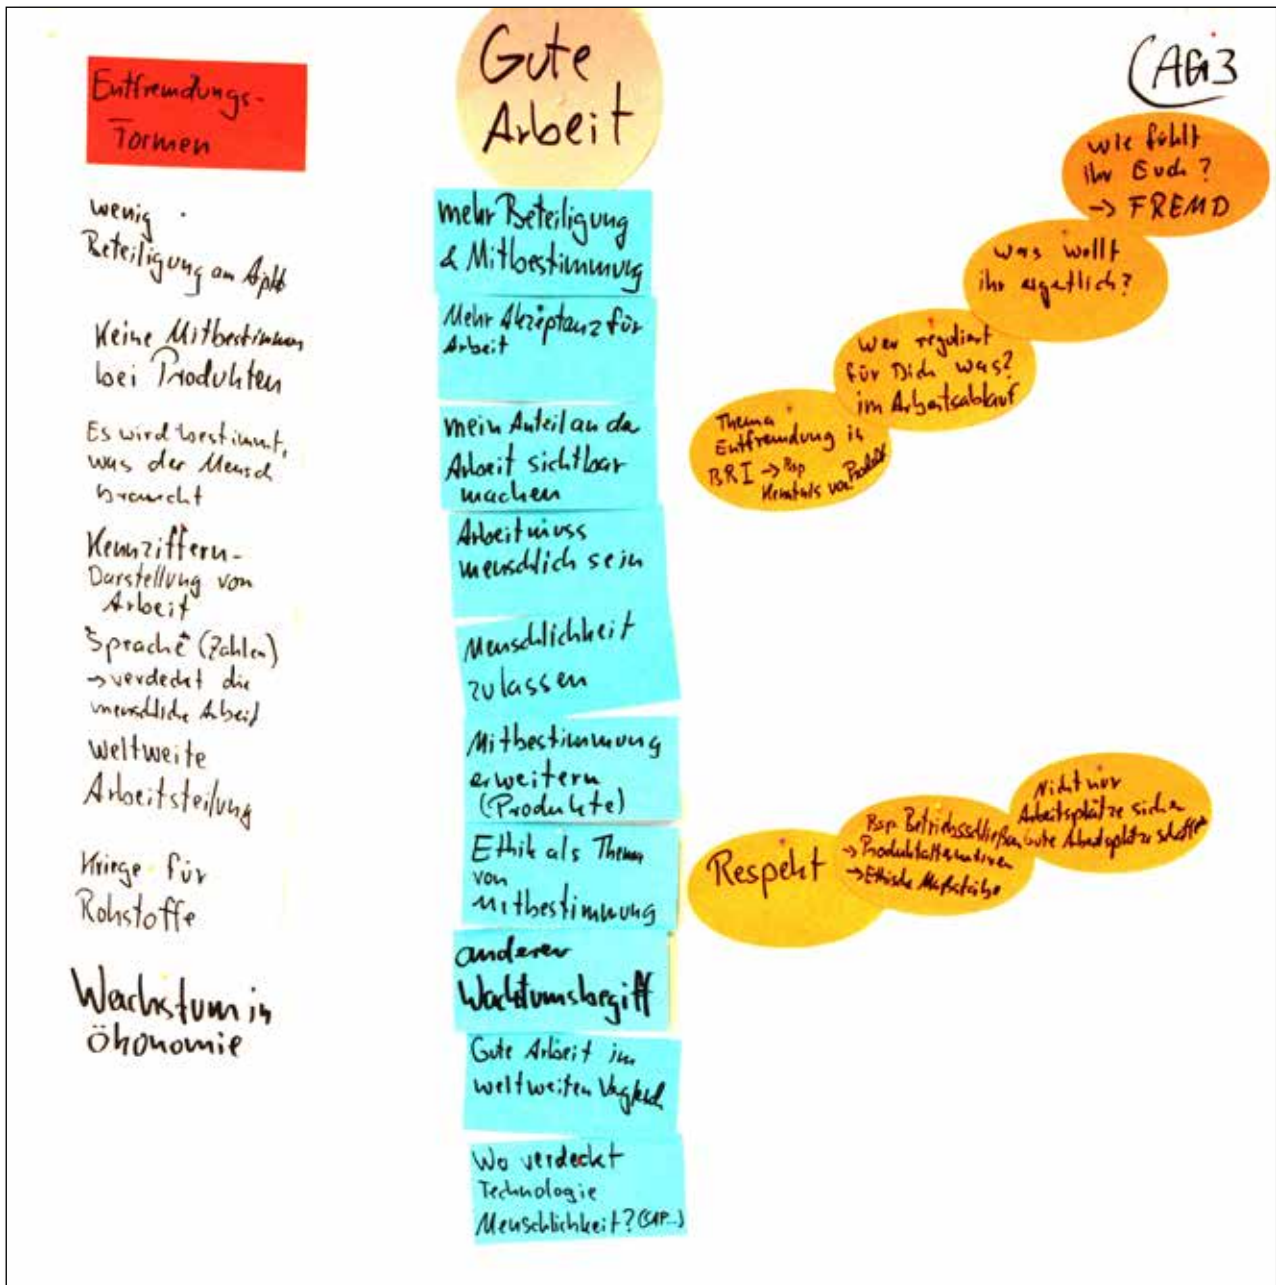 Entfremdungs-
Formen
wenig
Beteiligung am
Keine Mitbestimmen
bei Produkten
Es wird bestimmt,
was der Mensch
braucht
Kennziffern-
Darstellung von
Arbeit
"Sprache" (Zahlen)
→ verdeckt die
menschliche Arbeit
Weltweite
Arbeitsteilung
Kriege für
Rohstoffe
Wachstum in
Ökonomie
Gute
Arbeit
mehr Beteiligung
& Mitbestimmung
Mehr Akzeptanz für
Arbeit
mein Anteil an da
Arbeit sichtbar
machen
Arbeit muss
menschlich sein
Menschlichkeit
zulassen
Mitbestimmung
erweitern
(Produkte)
Ethik als Thema
von
Mitbestimmung
anderer
Wachtumsbegiff
Gute Arbeit im
weltweiten Vergleich
Wo verdeckt
Technologie
Menschlichkeit? (SAP...)
AG3
wie fühlt
ihr Euch?
→ FREMD
was wollt
ihr eigetlich?
Wer reguliert
für Dich was?
im Arbeitsablauf
Thema
Entfremdung in
BRI → Bsp
Kenntnis von Produkt
Respekt
Bsp Betriebsschließen
→ Produktalternativen
→ Ethische Maßstäbe
Nicht nur
Arbeitsplätze sichern
Gute Arbeitsplätze schaffen